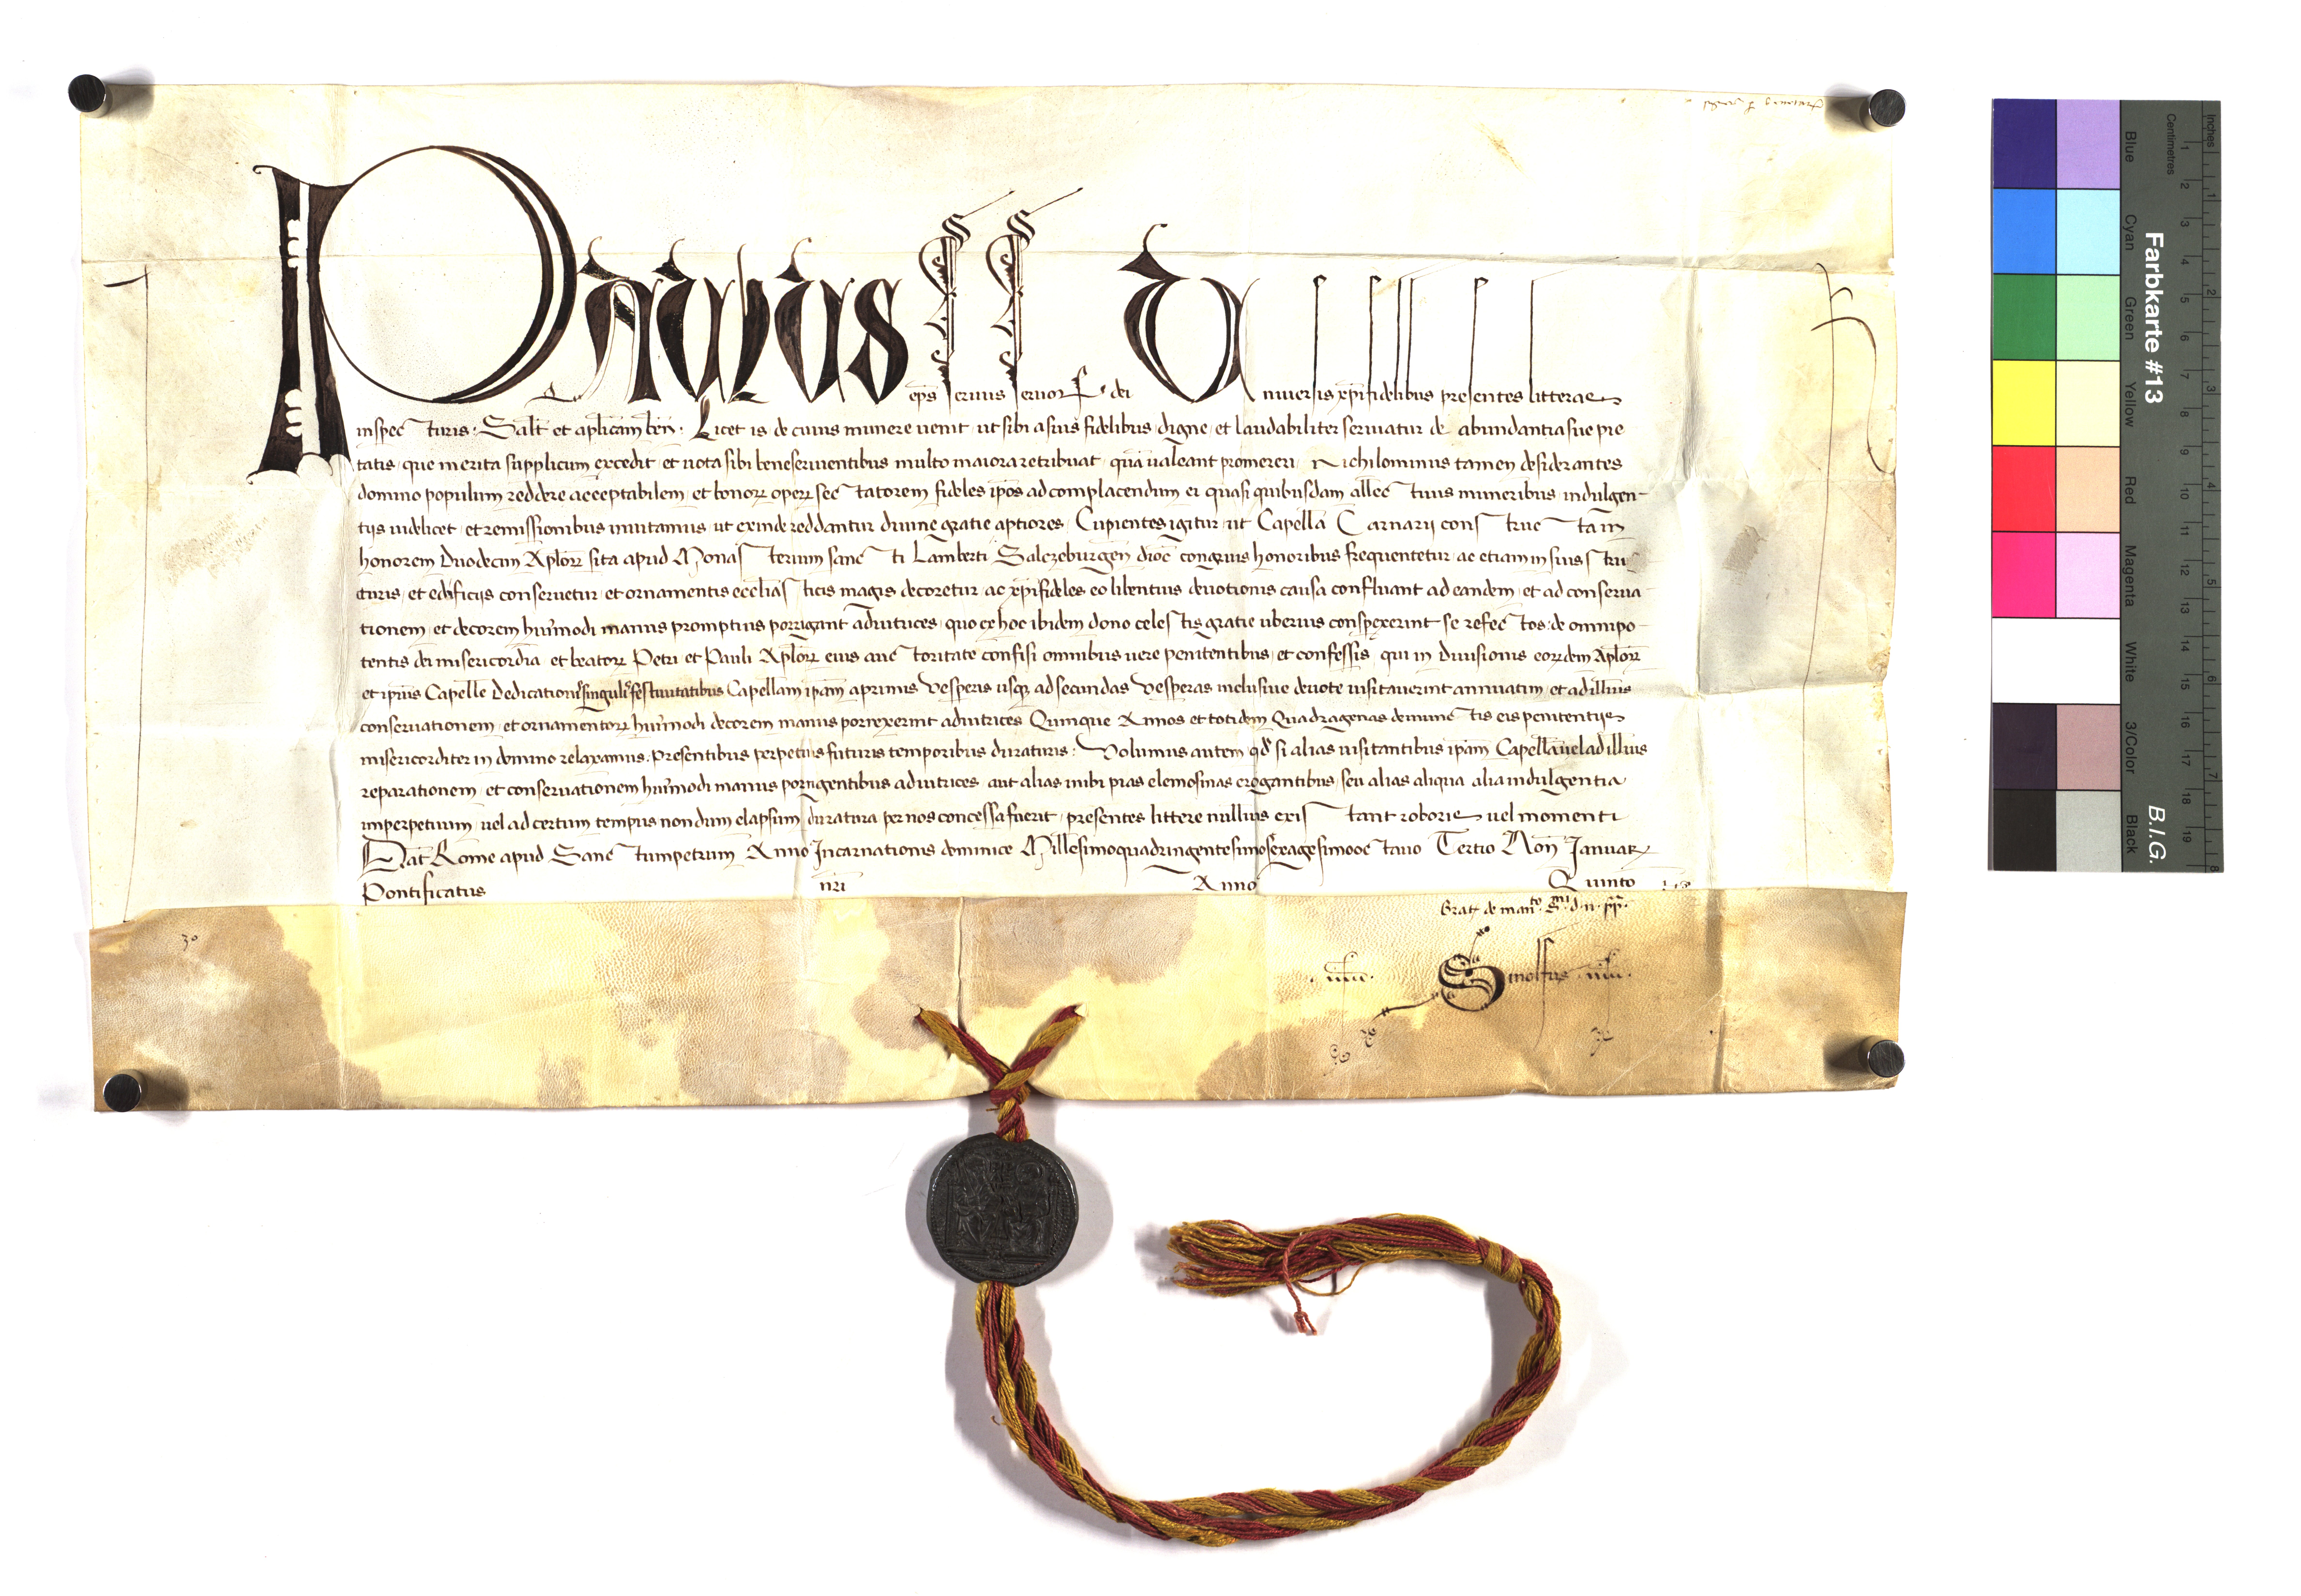 Paulus eps seruus seruor dei Uniuersis xpifidelibus presentes litteras
inspecturis. Salt et aplicam ben. Licet is de cuius munere uenit ut sibi a suis fidelibus digne et laudabiliter seruiatur de abundantia sue pie
tatis que merita supplicum excedit et uota sibi beneseruientibus multo maiora retribuat qua ualeant promereri Nichilominus tamen desiderantes
domino populum reddere acceptabilem et bonor oper sectatorem fideles ipos ad complacendum ei quasi quibusdam allectiuis muneribus indulgen-
tijs uidelicet et remissionibus inuitamus ut exinde reddantur diuine gratie aptiores Cupientes igitur ut Capella Carnarij constructa in
honorem Duodecim Aplor sita apud Monasterium sancti Lamberti Salczeburgen dioc congruis honoribus frequentetur ac etiam in suis stru
cturis et edificijs conseruetur et ornamentis ecclias ticis magis decoretur ac xpifideles eo libentius deuotionis causa confluant ad eandem et ad conserua-
tionem et decorem huiusmodi manus promptius porrigant adiutrices quo ex hoc ibidem dono celestis gratie uberius conspexerint se refectos de omnipo-
tentis dei misericordia et beator Petri et Pauli Aplor eius auctoritate confisi omnibus uere penitentibus et confessis qui in Diuisionis eordem Aplor
et ipius Capelle Dedicationis singulis festiuitatibus Capellam ipam a primis Vesperis usq ad secundas Vesperas inclusiue deuote uisitauerint annuatim et ad illius
conseruationem et ornamentor huiusmodi decorem manus porrexerint adiutrices Quinque Annos et totidem Quadragenas de iniunctis eis penitentijs
misericorditer in domino relaxamus. Presentibus perpetuis futuris temporibus duraturis: Volumus autem qd si alias uisitantibus ipam Capellam uel ad illius
reparationem et conseruationem huiusmodi manus porrigentibus adiutrices aut alias inibi pias elemosinas erogantibus seu alias aliqua alia indulgentia
imperpetuum uel ad certum tempus nondum elapsum duratura per nos concessa fuerit presentes littere nullius existant roboris uel momenti
Dat Rome apud Sanctumpetrum Anno Incarnationis dominice Millesimoquadringentesimosexagesimooctauo Tertio Non Januar
Pontificatus nri Anno Quinto
Grat de manto S mi d. n. pp.
Farbkarte #13
B.I.G.
Blue
Cyan
Green
Yellow
Red
Magenta
White
3/Color
Black
Centimetres
Inches
1 2 3 4 5 6 7 8 9 10 11 12 13 14 15 16 17 18 19
1 2 3 4 5 6 7 8